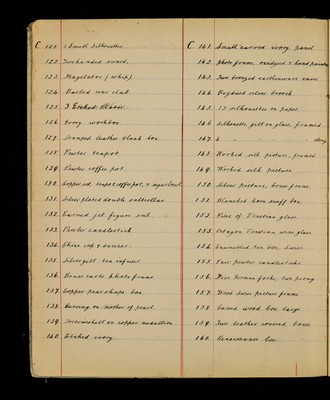 C. 121. 1 Small Silhouette
122. Two handed sword.
123. Flagelator (whip)
124. Barbed war club
125. 3 Etched
126. Ivory workbox.
127. Stamped leather black box.
128. Pewter teapot.
129. Pewter coffee pot.
130. Copper set, teapot, coffee pot, & sugar bowl.
131. Silver plated double saltcellar.
132. Carved jet figure
133. Pewter candlestick
134. China cup & saucer.
135. Silver gilt tea infuser
136. Brass carte photo frame
137. Copper pear shape box
138. Carving on mother of pearl.
139. on copper medallion.
140. Etched ivory
C. 141. Small carved ivory panel.
142. Photo frame & hand painted
143. Two bronzed earthenware vases
144. silver brooch.
145. 13 silhouettes on paper.
146. Silhouette, gilt on glass, framed.
147. 6 " " " "
148. Worked silk picture, framed
149. Worked silk picture.
150. Silver picture, brass frame.
151. Blanched horn snuff box
152. Piece of Venetian glass.
153. Octagon Venetian wine glass
154. Enamelled tin box, Swiss.
155. Pair pewter candlesticks
156. Nine German forks, two prong
157. Wood Swiss picture frame
158. Carved wood box, large
159. Two leather covered boxes.
160. Renaissance box.